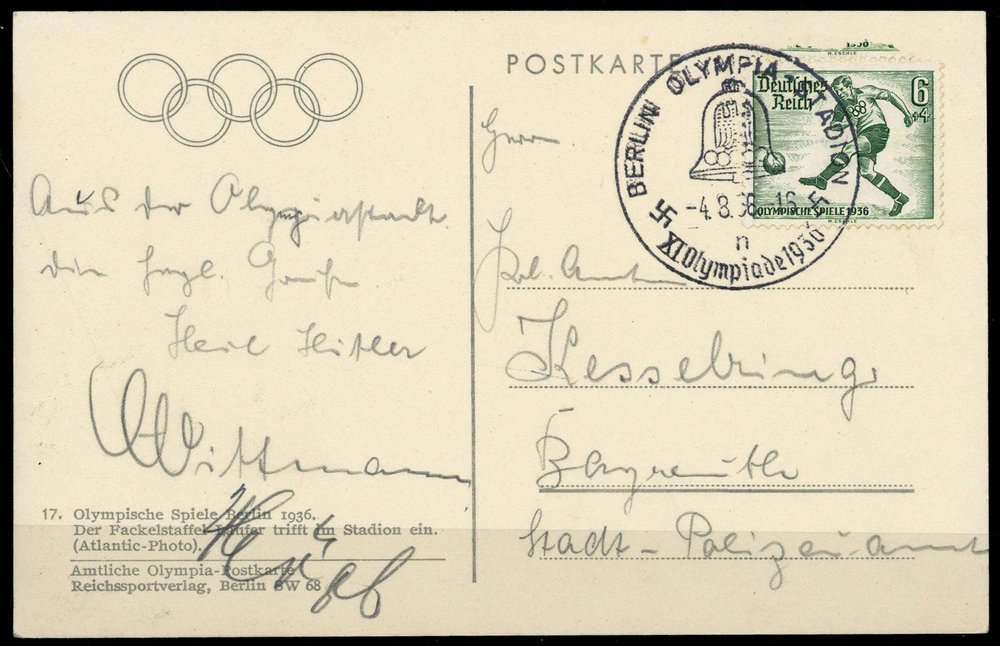 POSTKARTE
1936
H. EHRLE
Deutsches
Reich
6
+4
OLYMPISCHE SPIELE 1936
BERLIN OLYMPIA-STADION
-4.8.36-16
n
XI Olympiade 1936
Aus der Olympiastadt
die herzl. Grüße
Heil Hitler
Wittmann
17. Olympische Spiele Berlin 1936.
Der Fackelstaffel-Läufer trifft im Stadion ein.
(Atlantic-Photo).
Amtliche Olympia-Postkarte
Reichssportverlag, Berlin SW 68
Herrn
Pol. Amtm
Kesselring
Bayreuth
Stadt-Polizeiamt